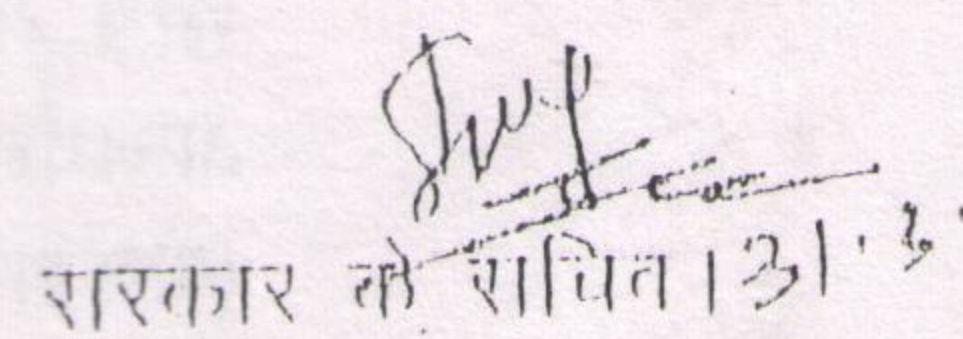 सरकार के सचिव । 31.3